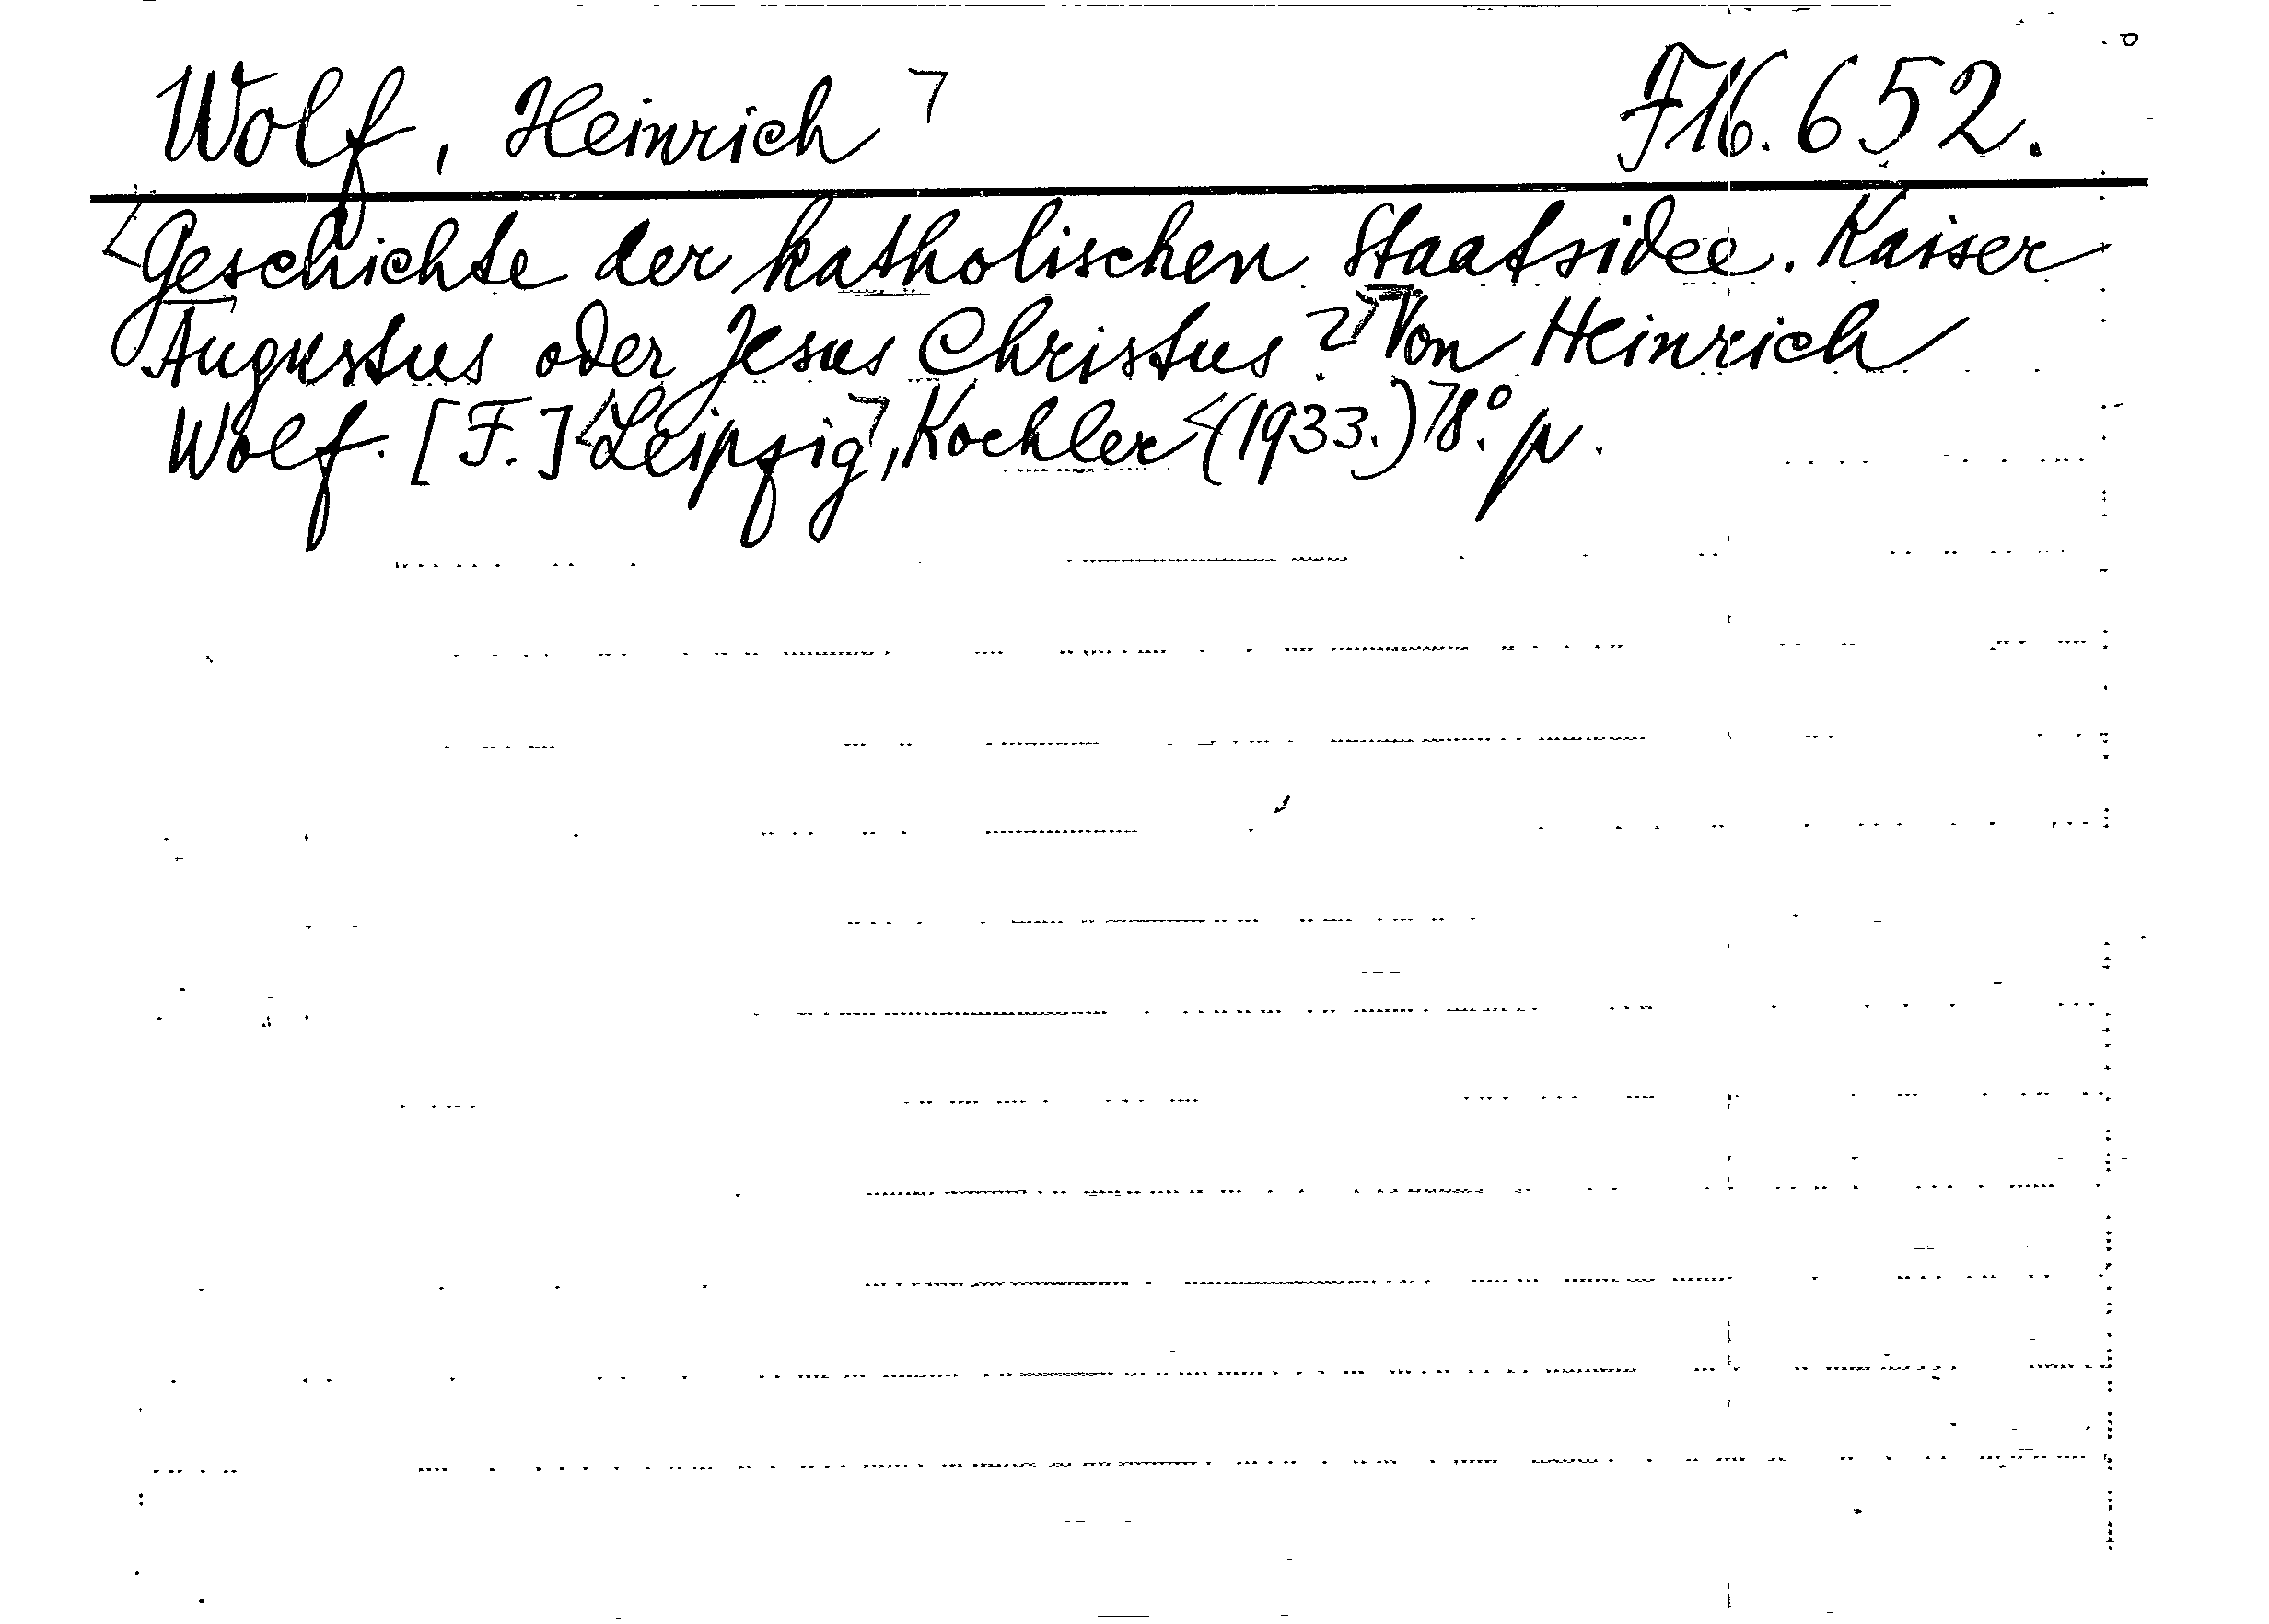 Wolf, Heinrich ⌝ F16.652.
<Geschichte der katholischen Staatsidee. Kaiser
Augustus oder Jesus Christus?⌝ Von Heinrich
Wolf. [F.] <Leipzig⌝, Koehler <(1933.)⌝ 8.° p.